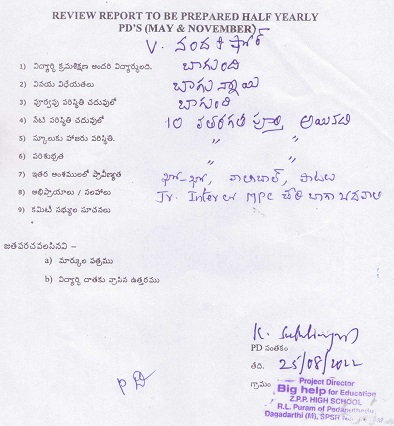 REVIEW REPORT TO BE PREPARED HALF YEARLY
PD'S (MAY & NOVEMBER)
V. నంద కిషోర్
1) విద్యార్థి క్రమశిక్షణ అందరి విద్యార్థులది. బాగుంది
2) వినయ విధేయతలు బాగున్నాయి
3) పూర్వపు పరిస్థితి చదువులో బాగుంది
4) నేటి పరిస్థితి చదువులో 10 వతరగతి పూర్తి అయినది
5) స్కూలుకు హాజరు పరిస్థితి. "
6) పరిశుభ్రత "
7) ఇతర అంశములలో ప్రావీణ్యత ఖో-ఖో, వాలీబాల్, పాటలు
8) అభిప్రాయాలు / సలహాలు Jr. Inter లో MPC చేరి బాగా చదవాలి
9) కమిటీ సభ్యుల సూచనలు
జతపరచవలసినవి –
a) మార్కుల పత్రము
b) విద్యార్థి దాతకు వ్రాసిన ఉత్తరము
PD సంతకం
తేది. 25/08/2022
గ్రామం
Project Director
Big help for Education
Z.P.P. HIGH SCHOOL
R.L. Puram of Pedaputhedu
Dagadarthi (M), SPSR
PD